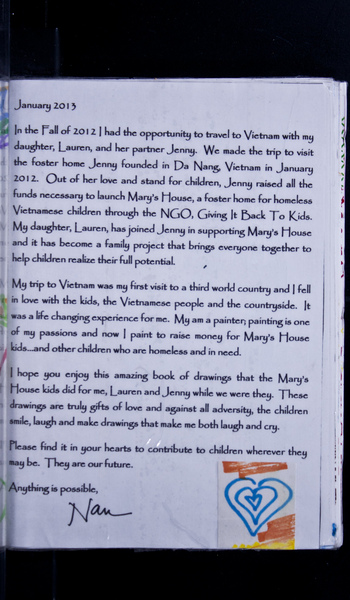 January 2013
In the Fall of 2012 I had the opportunity to travel to Vietnam with my
daughter, Lauren, and her partner Jenny. We made the trip to visit
the foster home Jenny founded in Da Nang, Vietnam in January
2012. Out of her love and stand for children, Jenny raised all the
funds necessary to launch Mary's House, a foster home for homeless
Vietnamese children through the NGO, Giving It Back To Kids.
My daughter, Lauren, has joined Jenny in supporting Mary's House
and it has become a family project that brings everyone together to
help children realize their full potential.
My trip to Vietnam was my first visit to a third world country and I fell
in love with the kids, the Vietnamese people and the countryside. It
was a life changing experience for me. My am a painter; painting is one
of my passions and now I paint to raise money for Mary's House
kids...and other children who are homeless and in need.
I hope you enjoy this amazing book of drawings that the Mary's
House kids did for me, Lauren and Jenny while we were they. These
drawings are truly gifts of love and against all adversity, the children
smile, laugh and make drawings that make me both laugh and cry.
Please find it in your hearts to contribute to children wherever they
may be. They are our future.
Anything is possible,
Nan